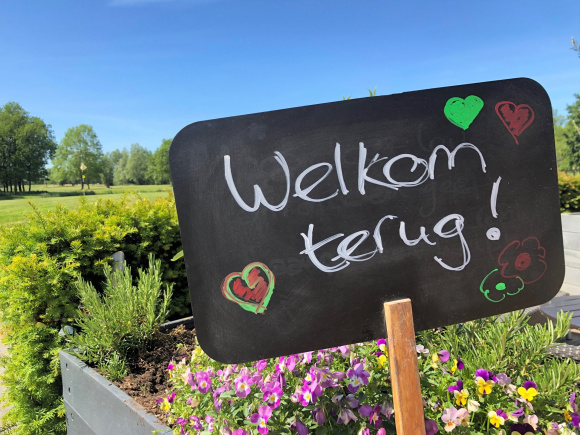 Welkom
terug!